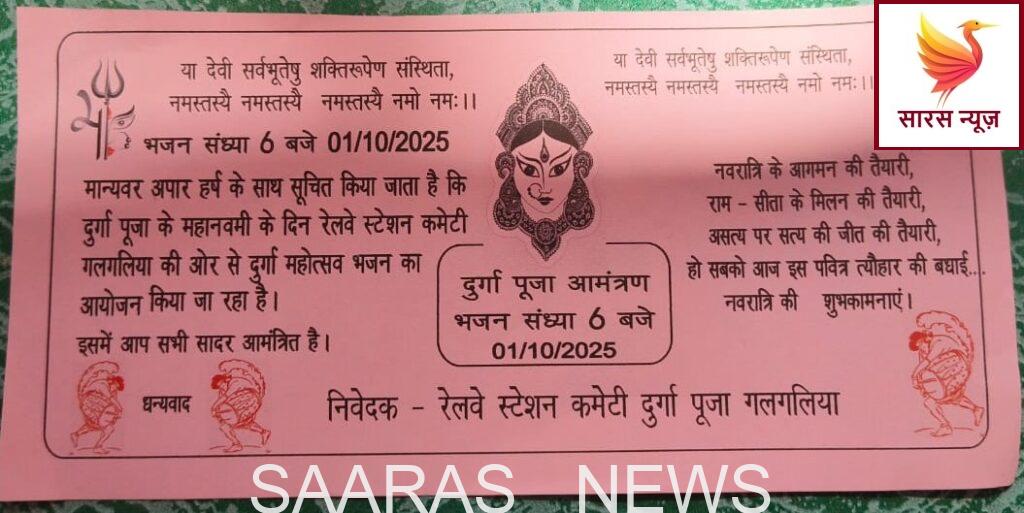 या देवी सर्वभूतेषु शक्तिरूपेण संस्थिता,
नमस्तस्यै नमस्तस्यै नमस्तस्यै नमो नमः।।
भजन संध्या 6 बजे 01/10/2025
मान्यवर अपार हर्ष के साथ सूचित किया जाता है कि
दुर्गा पूजा के महानवमी के दिन रेलवे स्टेशन कमेटी
गलगलिया की ओर से दुर्गा महोत्सव भजन का
आयोजन किया जा रहा है।
इसमें आप सभी सादर आमंत्रित है।
धन्यवाद
दुर्गा पूजा आमंत्रण
भजन संध्या 6 बजे
01/10/2025
या देवी सर्वभूतेषु शक्तिरूपेण संस्थिता,
नमस्तस्यै नमस्तस्यै नमस्तस्यै नमो नमः।।
नवरात्रि के आगमन की तैयारी,
राम - सीता के मिलन की तैयारी,
असत्य पर सत्य की जीत की तैयारी,
हो सबको आज इस पवित्र त्यौहार की बधाई....
नवरात्रि की शुभकामनाएं।
निवेदक - रेलवे स्टेशन कमेटी दुर्गा पूजा गलगलिया
सारस न्यूज़
SAARAS NEWS